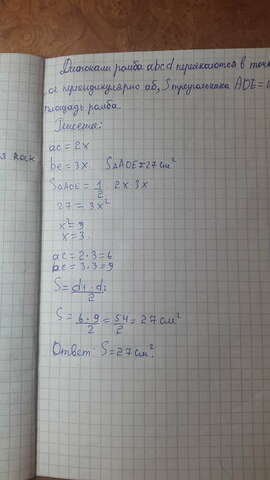 Диагонали ромба abcd пересекаются в точк
ог перпендикулярно аб, S треугольника AOE =
площадь ромба.
Решение:
ac = 2x
be = 3x S△AOE = 27 см²
S△AOE = 1/2 2x 3x
27 = 3x²
x² = 9
x = 3
ac = 2·3 = 6
be = 3·3 = 9
S = d1·d2/2
S = 6·9/2 = 54/2 = 27 см²
Ответ: S = 27 см².